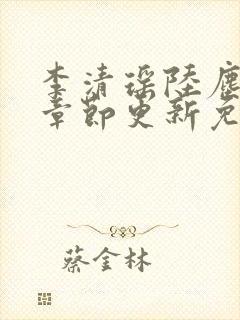 李清瑶陆尘
章节更新免
蔡金林